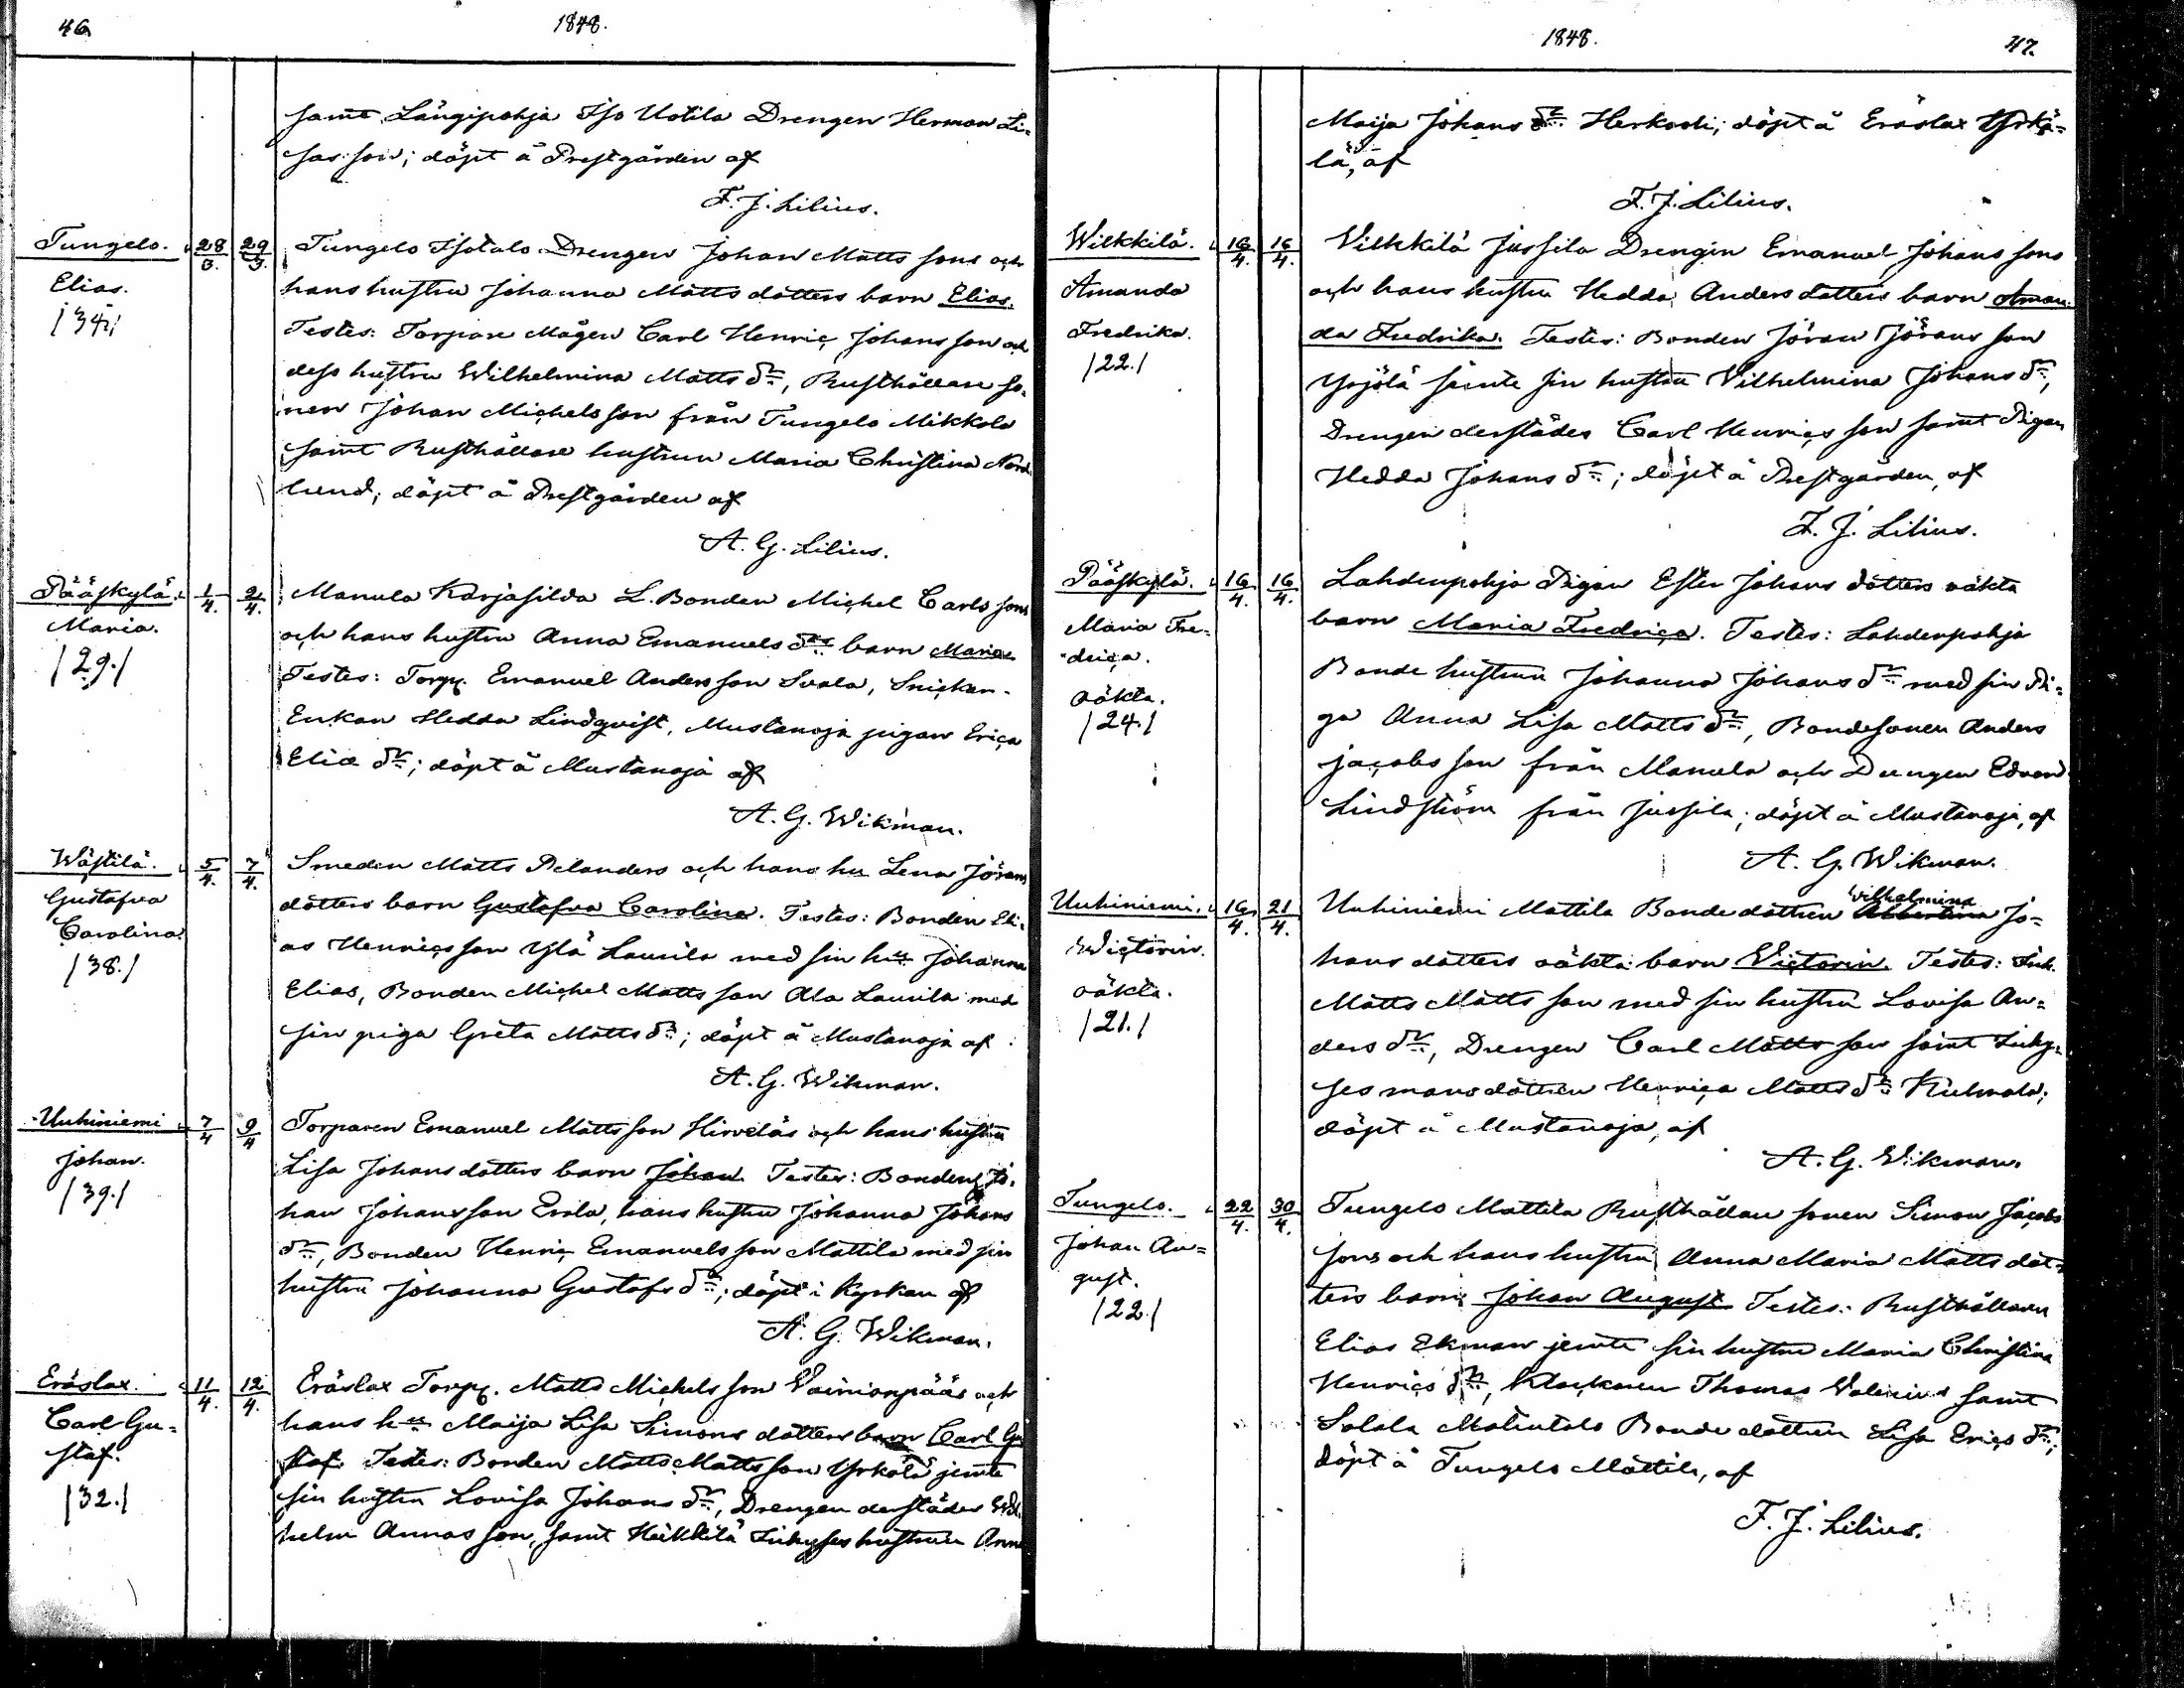 46.
1848.
samt Längipohja Iso Uotila Drengen Herman Li=
sas son; döpt å Prestgården af
F. J. Lilius.
Tungelo.
28/3.
29/3.
Elias.
/34/
Tungelo Isotalo Drengen Johan Matts sons och
hans hustru Johanna Matts dotters barn Elias.
Testes: Torpare Mågen Carl Henric Johans son och
dess hustru Wilhelmina Matts dr, Rusthållare so=
nen Johan Michels son från Tungelo Mikkola
samt Rusthållare hustrun Maria Christina Nord=
lund; döpt å Prestgården af
A. G. Lilius.
Pääskylä.
1/4.
2/4.
Maria.
/29./
Manula Karjasilda L. Bonden Michel Carls sons
och hans hustru Anna Emanuels drs barn Maria
Testes: Torp. Emanuel Anders son Suola, Snickar-
Enkan Hedda Lindqvist, Mustanoja pigan Erica
Eliæ dr; döpt å Mustanoja af
A. G. Wikman.
Wästilä.
5/4.
7/4.
Gustafva
Carolina.
/38./
Smeden Matts Pelanders och hans hu Lena Jörans
dotters barn Gustafva Carolina. Testes: Bonden Eli=
as Henrics son Ylä Laurila med sin hu Johanna
Elias, Bonden Michel Matts son Ala Laurila med
sin piga Greta Matts dr; döpt å Mustanoja af
A. G. Wikman.
Uuhiniemi
7/4
9/4
Johan.
/39./
Torparen Emanuel Matts son Hirveläs och hans hustru
Lisa Johans dotters barn Johan. Testes: Bonden Jo=
han Johans son Erola, hans hustru Johanna Johans
dr, Bonden Henric Emanuels son Mattila med sin
hustru Johanna Gustafs dr; döpt i Kyrkan af
A. G. Wikman.
Eräslax.
11/4.
12/4.
Carl Gu=
staf.
/32./
Eräslax Torp. Matts Michels son Vainionpääs och
hans hu Maija Lisa Simons dotters barn Carl Gu
staf. Testes: Bonden Matts Matts son Yrkölä jemte
sin hustru Lovisa Johans dr, Drengen derstädes Wil
helm Annas son, samt Heikkilä Inhyses hustrun Anna
1848.
47.
Maija Johans dr Herkoski; döpt å Eräslax Yrkö=
lä, af
F. J. Lilius.
Wilkkilä.
16/4.
16/4.
Amanda
Fredrika.
/22./
Vilkkilä Jussila Drengin Emanuel Johans sons
och hans hustru Hedda Anders dotters barn Aman=
da Fredrika. Testes: Bonden Jöran Jörans son
Yojölä jämte sin hustru Vilhelmina Johans dr,
Drengen derstädes Carl Henrics son samt Pigan
Hedda Johans dr; döpt å Prestgården, af
F. J. Lilius.
Pääskylä.
16/4.
16/4.
Maria Fre=
drica.
oäkta.
/24./
Lahdenpohja Pigan Ester Johans dotters oäkta
barn Maria Fredrica. Testes: Lahdenpohja
Bonde hustrun Johanna Johans dr med sin Pi=
ga Anna Lisa Matts dr, Bondesonen Anders
Jacobs son från Manula och Drengen Edvard
Lindström från Jussila; döpt å Mustanoja, af
A. G. Wikman.
Uuhiniemi.
16/4.
21/4.
Wictorin.
oäkta.
/21./
Vilhelmina
Uuhiniemi Mattila Bonde dottren Albertina Jo=
hans dotters oäkta barn Victorin. Testes: Inh.
Matts Matts son med sin hustru Lovisa An=
ders dr, Drengen Carl Matts son samt Inhy=
ses mans dottren Henrica Matts dr
döpt å Mustanoja, af
A. G. Wikman.
Tungelo.
22/4.
30/4.
Johan Au=
gust.
/22./
Tungelo Mattila Rusthållare sonen Simon Jacobs
sons och hans hustru Anna Maria Matts dot=
ters barn Johan August. Testes: Rusthållaren
Elias Ekman jemte sin hustru Maria Christina
Henrics dr, Klockaren Thomas Valenius samt
Salala Matintalo Bonde dottren Lisa Erics dr;
döpt å Tungelo Mattila, af
F. J. Lilius.